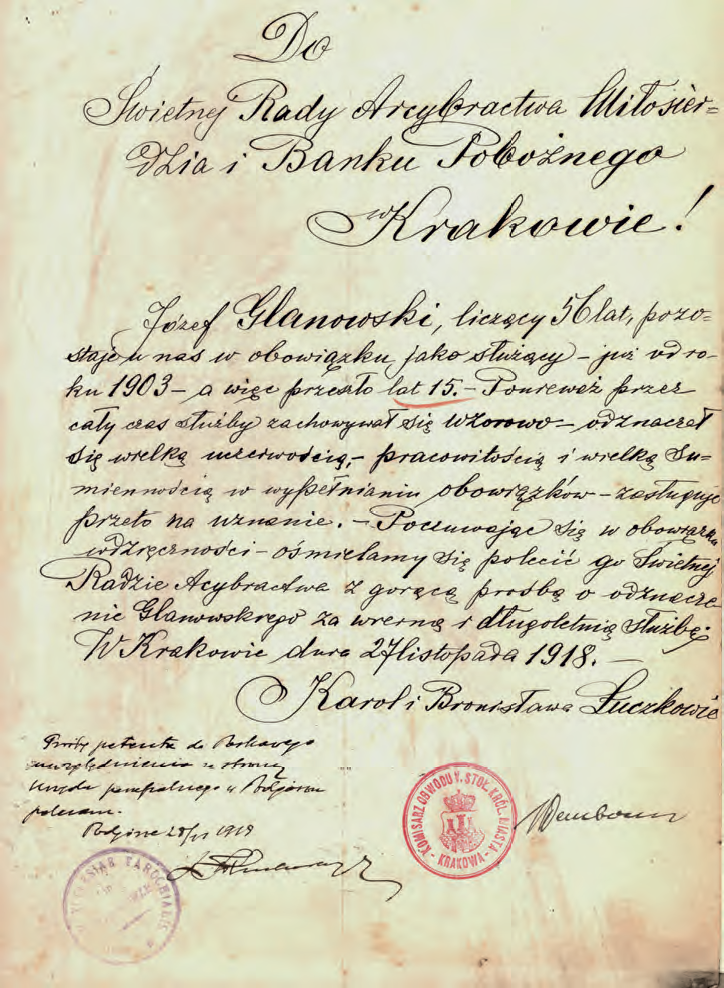 Do
Świetnej Rady Arcybractwa Miłosier=
dzia i Banku Pobożnego
w Krakowie!
Józef Glanowski, liczący 56 lat, pozo-
staje u nas w obowiązku jako służący – już od ro-
ku 1903 – a więc przeszło lat 15. – Ponieważ przez
cały czas służby zachowywał się wzorowo – odznaczał
się wielką uczciwością, – pracowitością i wielką su-
miennością w wypełnianiu obowiązków – zasługuje
przeto na uznanie. – Poczuwając się w obowiązku
wdzięczności – ośmielamy się polecić go Świetnej
Radzie Acybractwa z gorącą prośbą o odznacze
nie Glanowskiego za wierną i długoletnią służbę.
W Krakowie dnia 27 listopada 1918. –
Karol i Bronisława Łuczkowie
Prośbę petenta do łaskawego
uwzględnienia ze strony
Urzędu parafialnego w Podgórzu
polecam.
Podgórze 28/XI 1918
KOMISARZ OBWODU V. STOŁ. KRÓL. MIASTA
KRAKOWA
ECCLESIAE PAROCHIALIS